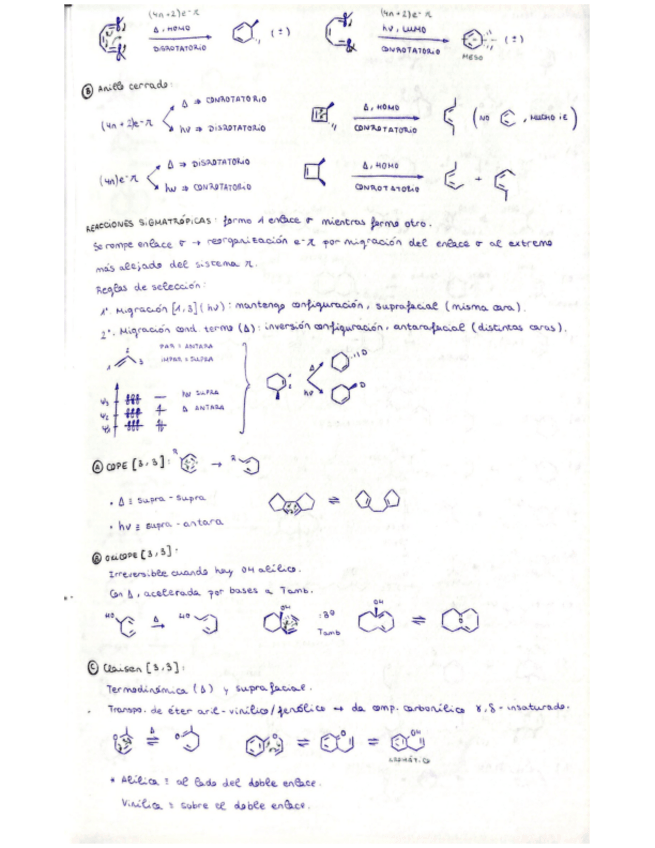 (4n+2)e-π
Δ, HOMO
DISROTATORIO
(±)
(4n+2)e-π
hν, LUMO
CONROTATORIO
MESO
(±)
Ⓑ Anillo cerrado:
(4n+2)e-π
Δ ⇒ CONROTATORIO
hν ⇒ DISROTATORIO
Δ, HOMO
CONROTATORIO
(NO , MUCHO IE)
(4n)e-π
Δ ⇒ DISROTATORIO
hν ⇒ CONROTATORIO
Δ, HOMO
CONROTATORIO
+
REACCIONES SIGMATRÓPICAS: formo 1 enlace σ mientras formo otro.
Se rompe enlace σ → reorganización e-π por migración del enlace σ al extremo
más alejado del sistema π.
Reglas de selección:
1ª. Migración [1,3] (hν): mantengo configuración, suprafacial (misma cara).
2ª. Migración cond. termo (Δ): inversión configuración, antarafacial (distintas caras).
PAR = ANTARA
IMPAR = SUPRA
1 2 3
hν SUPRA
Δ ANTARA
ψ3
ψ2
ψ1
1 2
Δ
hν
D
D
Ⓐ COPE [3,3]: R → R
• Δ = supra-supra
• hν = supra-antara
Ⓑ OXICOPE [3,3]:
Irreversible cuando hay OH alílico.
Con Δ, acelerada por bases a Tamb.
HO Δ HO
OH :B⊖ Tamb OH
Ⓒ Claisen [3,3]:
Termodinámica (Δ) y suprafacial.
Transpo. de éter aril-vinílico/fenólico → da comp. carbonílico γ,δ-insaturado.
O Δ O
O O OH
AROMÁTICO
* Alílica = al lado del doble enlace.
Vinílica = sobre el doble enlace.